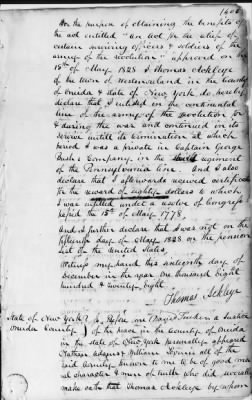 For the purpose of obtaining the benefits of
the act entitled "an Act for the relief of
certain surviving officers & soldiers of the
army of the revolution" approved on the
15th of May 1828 I Thomas Ackleye
of the town of Westmoreland in the County
of Oneida & State of New York do hereby
declare that I enlisted in the continental
line of the army of the revolution for
& during the war and continued in its
service until its termination at which
period I was a private in Captain George
Bush's Company in the regiment
of the Pennsylvania line. And I also
declare that I afterwards received certificate
for the reward of eighty dollars to which
I was entitled under a resolve of Congress
passed the 15th of May 1778.
And I further declare that I was not on the
fifteenth day of March 1828 on the pension
list of the United States,
Witness my hand this twentyeth day of
December in the year one thousand eight
hundred & twenty eight
Thomas Ackleye
State of New York Before me David a Justice
Oneida County of the peace in the County of Oneida
in the state of New York personally appeared
Nathan & William both of the
said County known to me to be of good moral
character & men of truth who did severally
make oath that Thomas Ackleye by whom